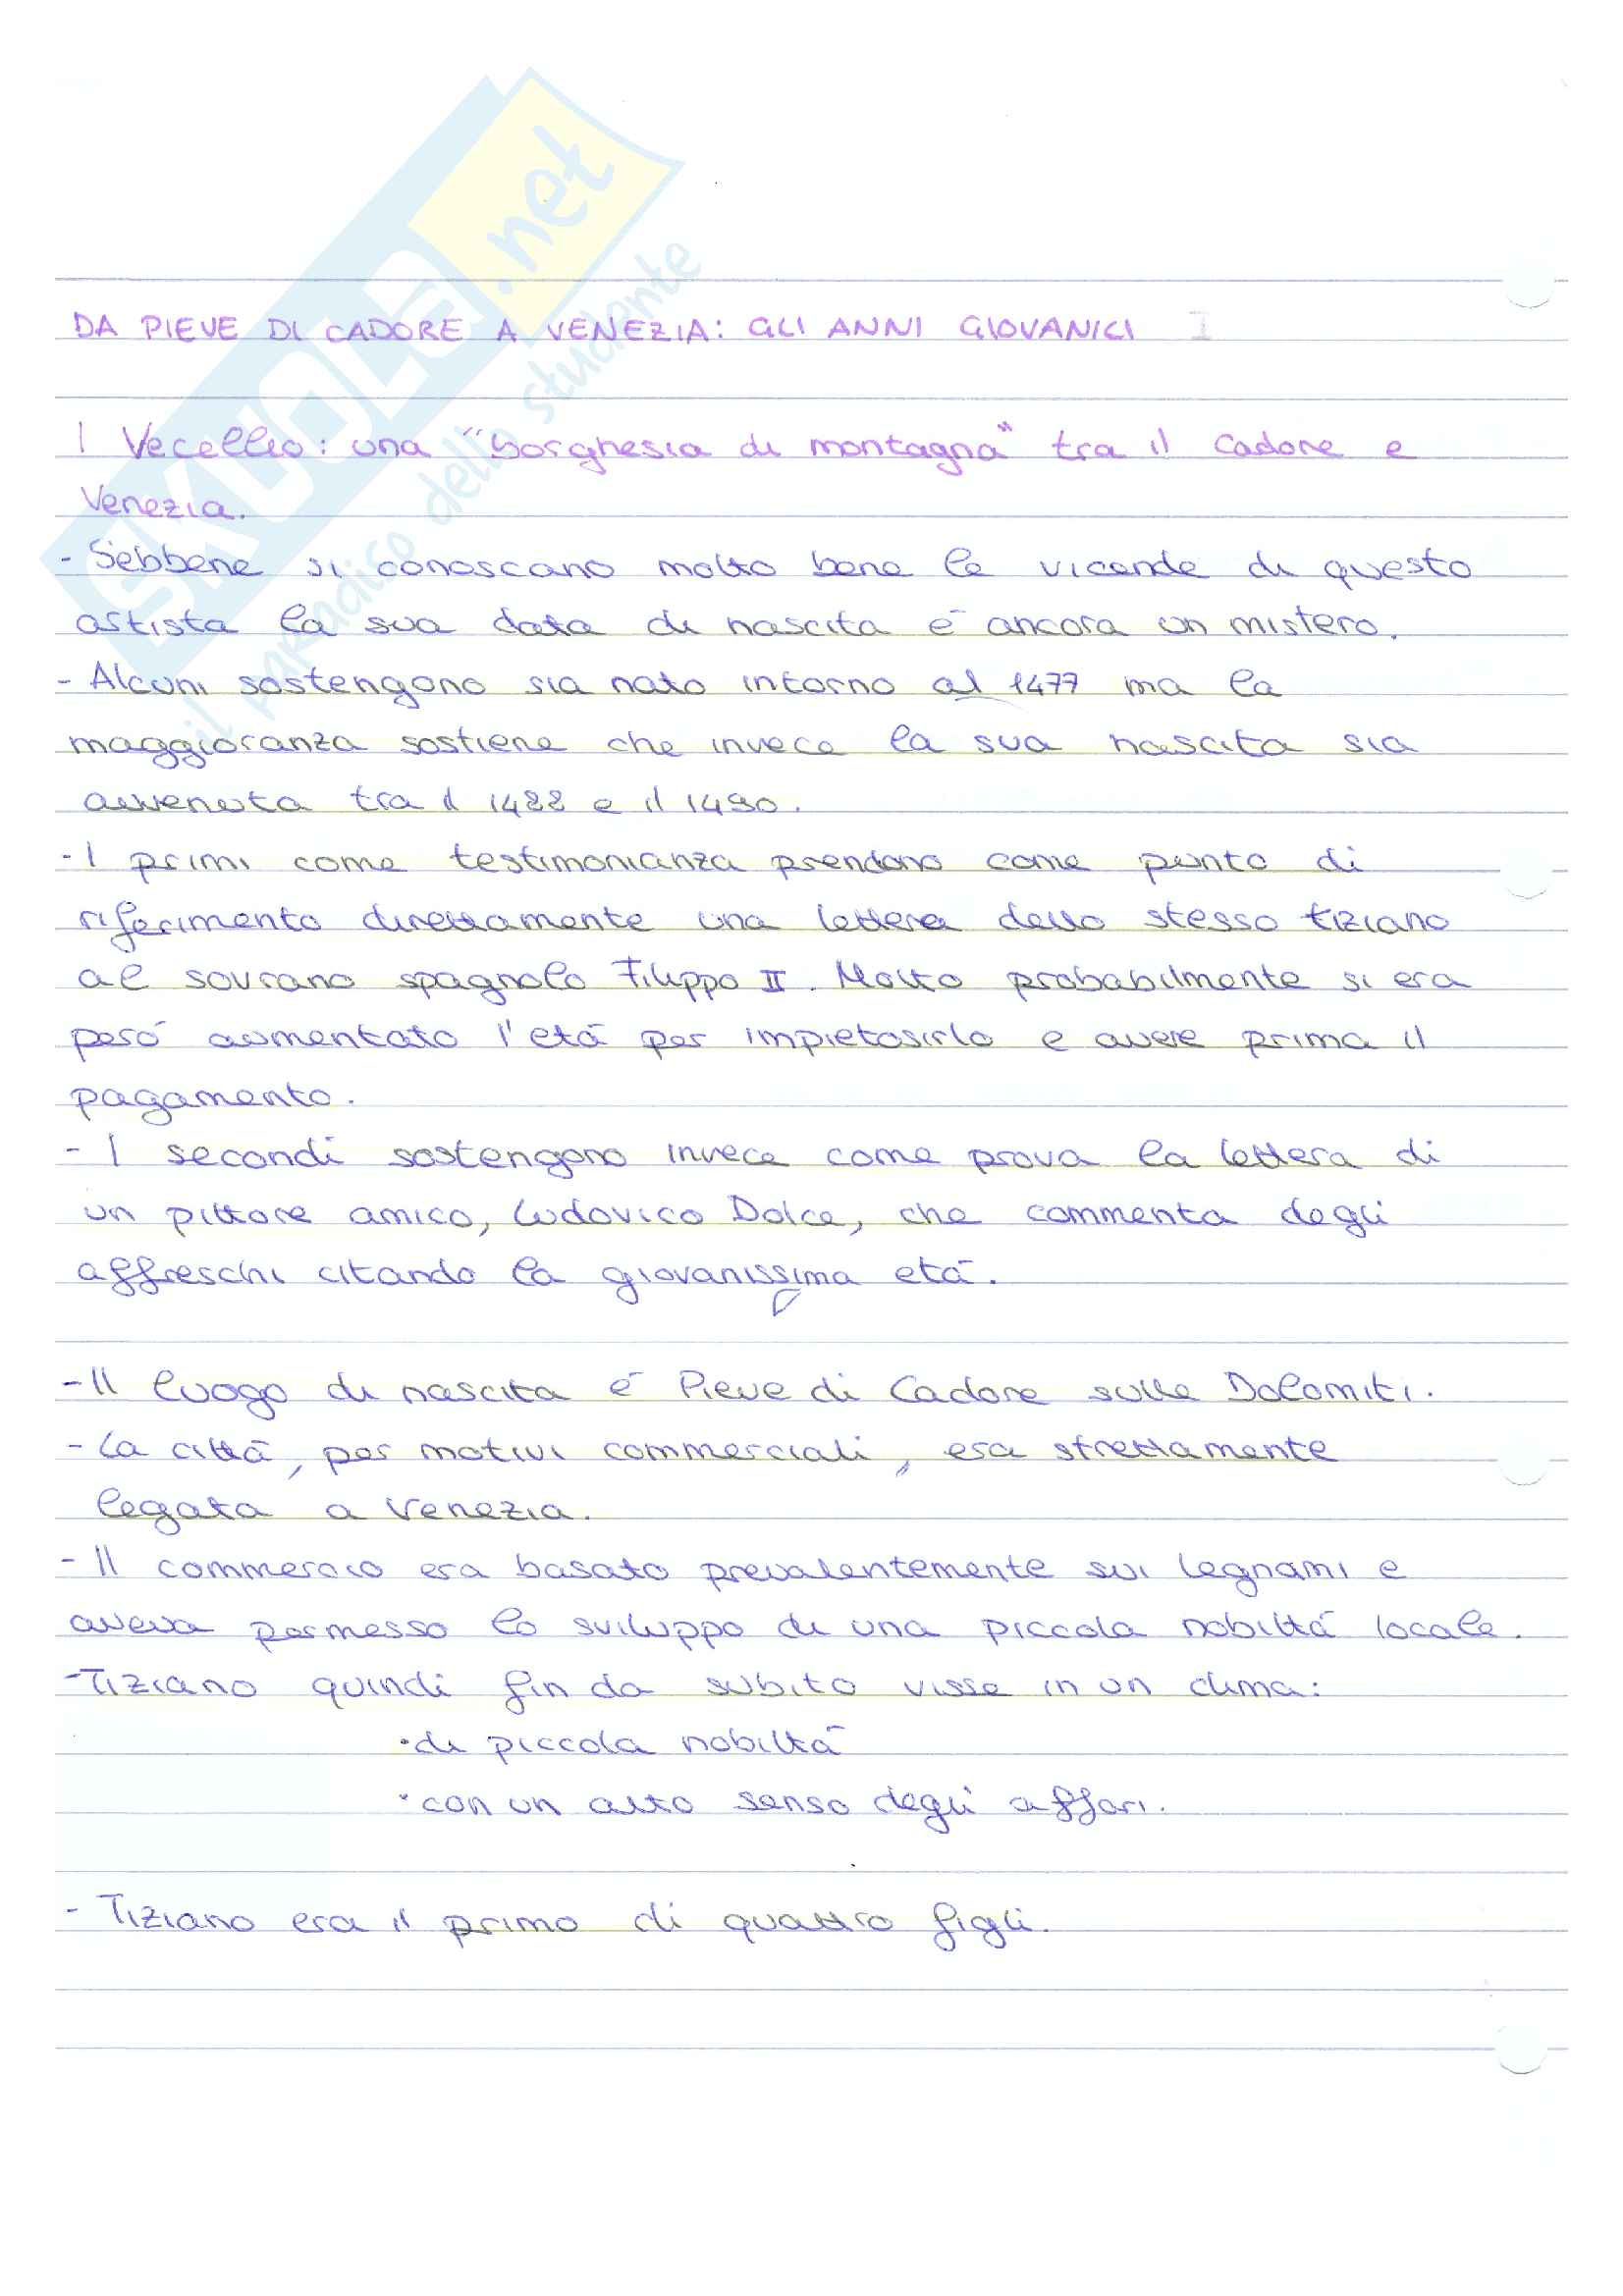 SKUOLA.net
il paradiso dello studente
DA PIEVE DI CADORE A VENEZIA: GLI ANNI GIOVANILI I
I Vecellio: una "borghesia di montagna" tra il Cadore e
Venezia.
- Sebbene si conoscano molto bene le vicende di questo
artista la sua data di nascita é ancora un mistero.
- Alcuni sostengono sia nato intorno al 1477 ma la
maggioranza sostiene che invece la sua nascita sia
avvenuta tra il 1488 e il 1490.
- I primi come testimonianza prendono come punto di
riferimento direttamente una lettera dello stesso tiziano
al sovrano spagnolo Filippo II. Molto probabilmente si era
peró aumentato l'etá per impietosirlo e avere prima il
pagamento.
- I secondi sostengono invece come prova la lettera di
un pittore amico, Ludovico Dolce, che commenta degli
affreschi citando la giovanissima etá.
- Il luogo di nascita é Pieve di Cadore sulle Dolomiti.
- La cittá, per motivi commerciali, era strettamente
legata a Venezia.
- Il commercio era basato prevalentemente sui legnami e
aveva permesso lo sviluppo di una piccola nobiltá locale.
- Tiziano quindi fin da subito visse in un clima:
• di piccola nobiltá
• con un alto senso degli affari.
- Tiziano era il primo di quattro figli.